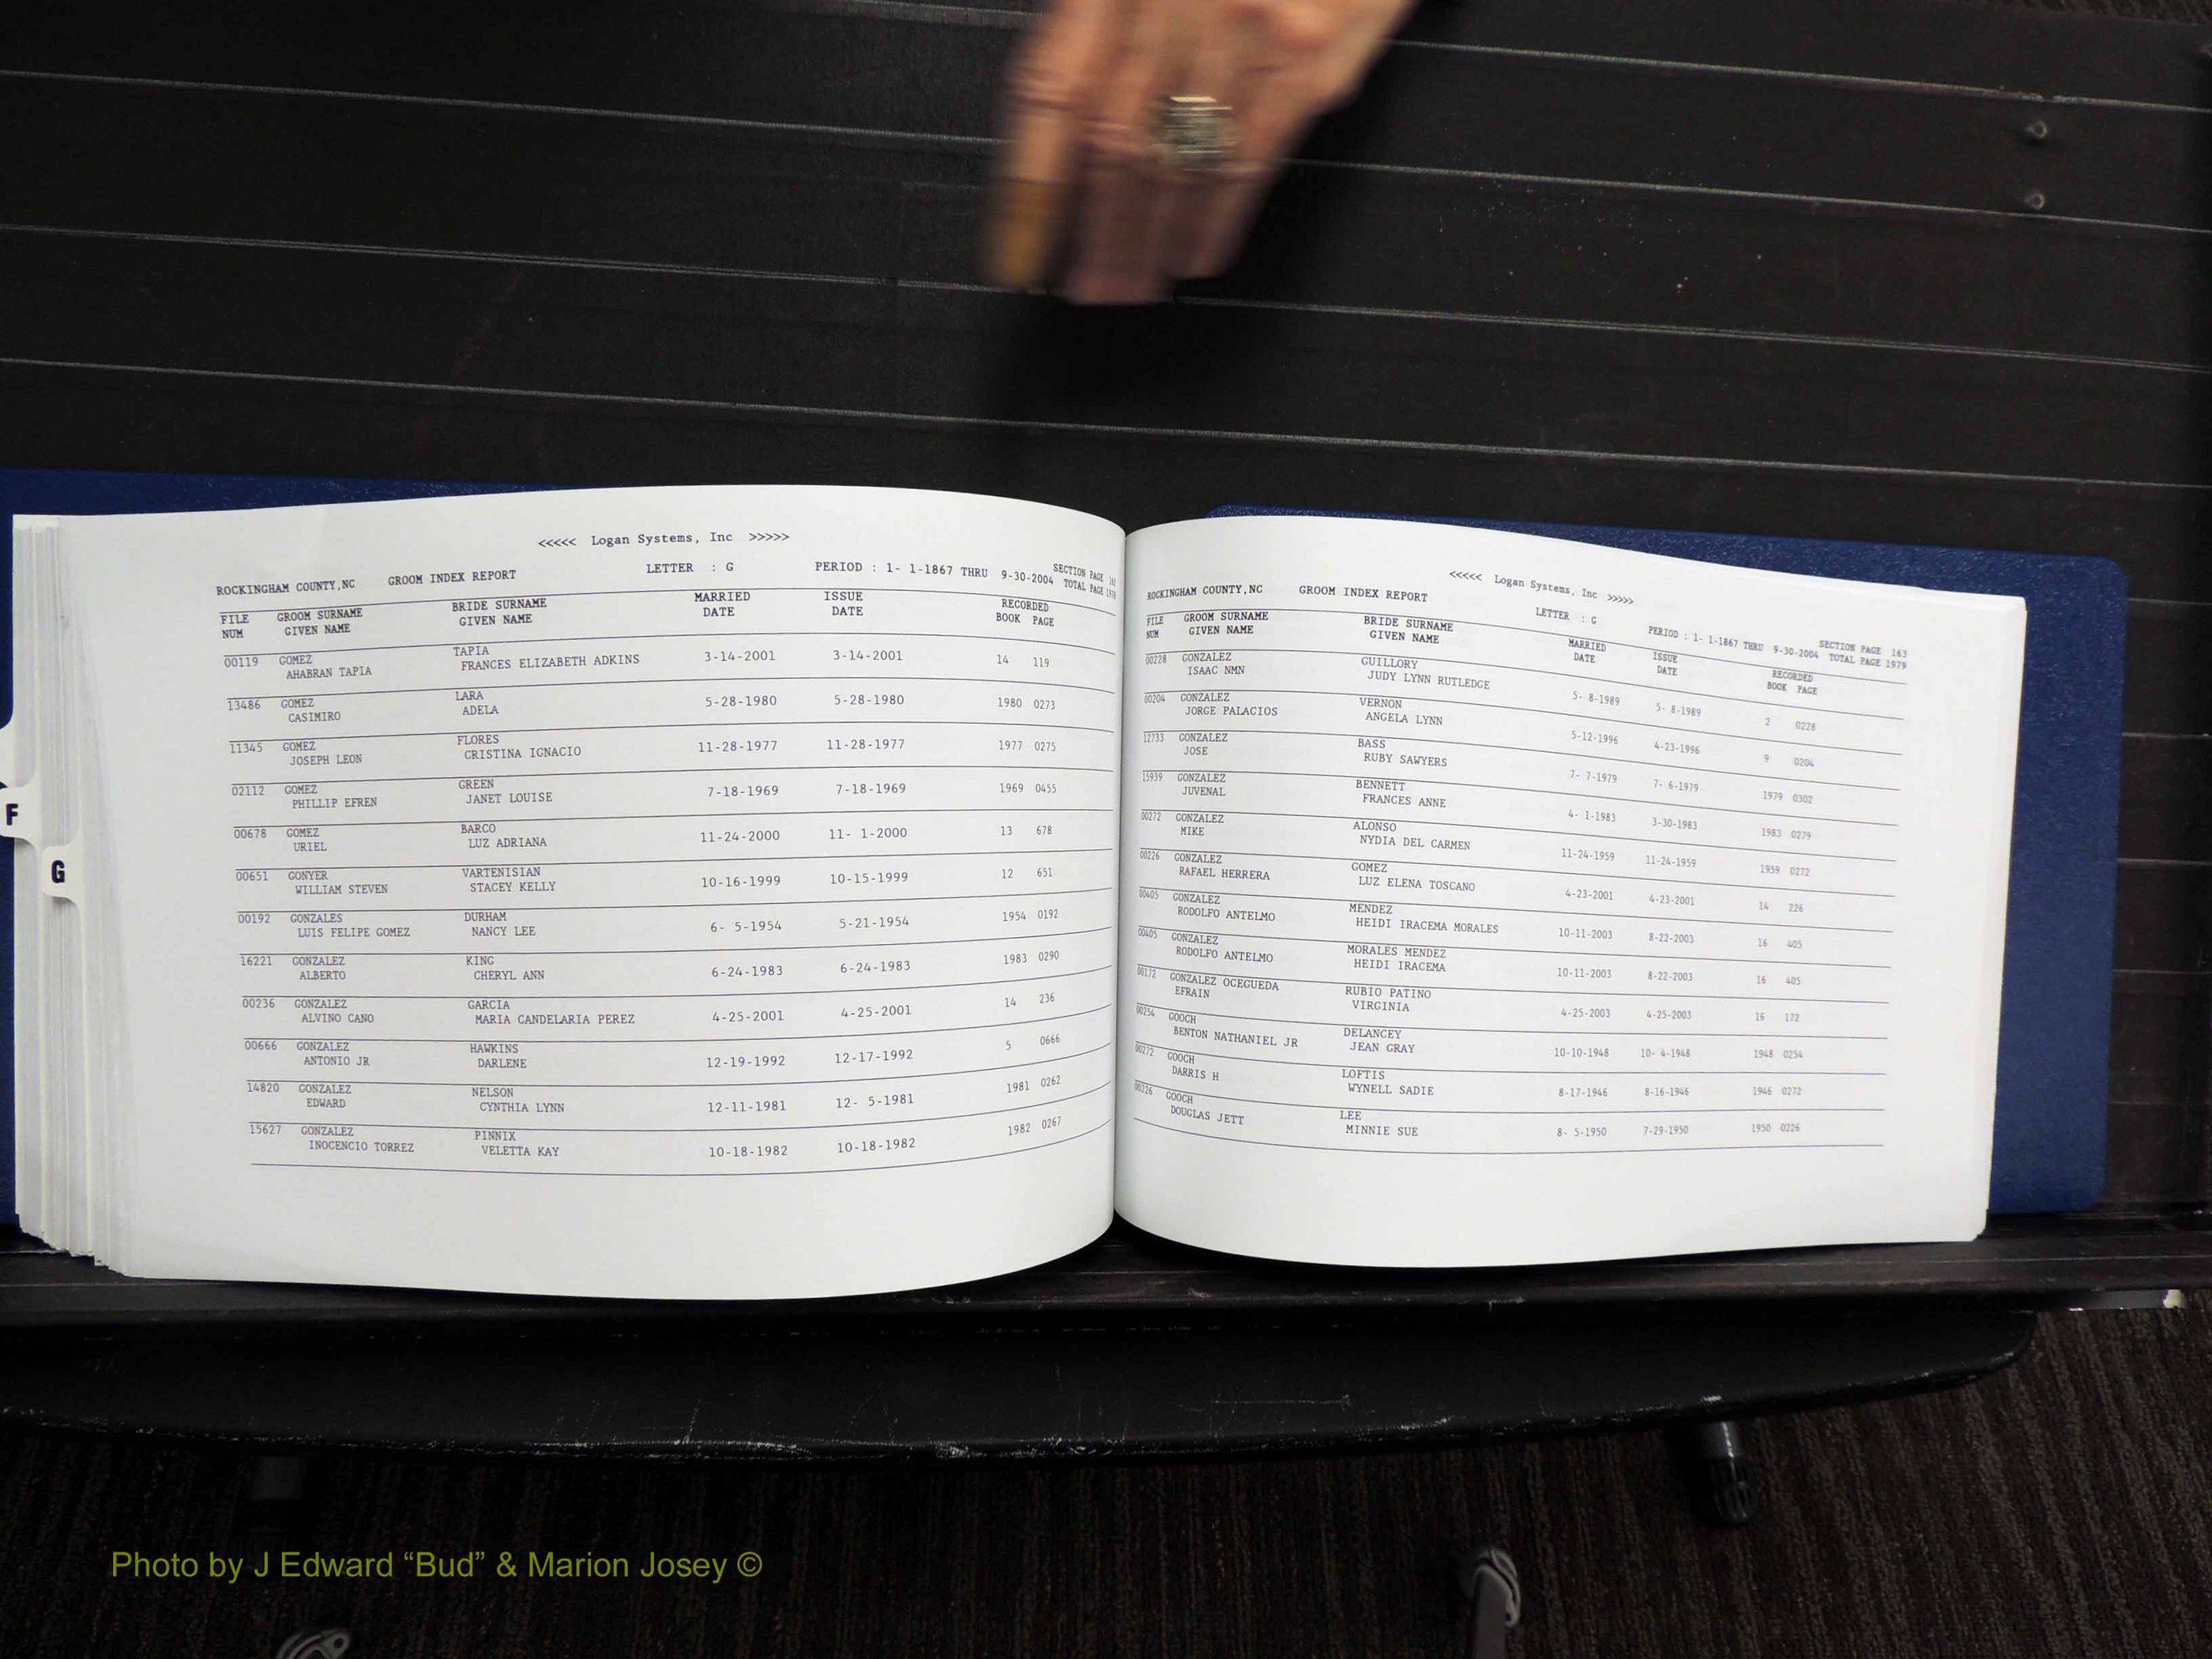 <<<<< Logan Systems, Inc >>>>>
ROCKINGHAM COUNTY,NC GROOM INDEX REPORT LETTER : G PERIOD : 1- 1-1867 THRU 9-30-2004 SECTION PAGE 162
TOTAL PAGE 1978
FILE GROOM SURNAME BRIDE SURNAME MARRIED ISSUE RECORDED
NUM GIVEN NAME GIVEN NAME DATE DATE BOOK PAGE
00119 GOMEZ TAPIA 3-14-2001 3-14-2001 14 119
AHABRAN TAPIA FRANCES ELIZABETH ADKINS
13486 GOMEZ LARA 5-28-1980 5-28-1980 1980 0273
CASIMIRO ADELA
11345 GOMEZ FLORES 11-28-1977 11-28-1977 1977 0275
JOSEPH LEON CRISTINA IGNACIO
02112 GOMEZ GREEN 7-18-1969 7-18-1969 1969 0455
PHILLIP EFREN JANET LOUISE
00678 GOMEZ BARCO 11-24-2000 11- 1-2000 13 678
URIEL LUZ ADRIANA
00651 GONYER VARTENISIAN 10-16-1999 10-15-1999 12 651
WILLIAM STEVEN STACEY KELLY
00192 GONZALES DURHAM 6- 5-1954 5-21-1954 1954 0192
LUIS FELIPE GOMEZ NANCY LEE
16221 GONZALEZ KING 6-24-1983 6-24-1983 1983 0290
ALBERTO CHERYL ANN
00236 GONZALEZ GARCIA 4-25-2001 4-25-2001 14 236
ALVINO CANO MARIA CANDELARIA PEREZ
00666 GONZALEZ HAWKINS 12-19-1992 12-17-1992 5 0666
ANTONIO JR DARLENE
14820 GONZALEZ NELSON 12-11-1981 12- 5-1981 1981 0262
EDWARD CYNTHIA LYNN
15627 GONZALEZ PINNIX 10-18-1982 10-18-1982 1982 0267
INOCENCIO TORREZ VELETTA KAY
F
G
<<<<< Logan Systems, Inc >>>>>
ROCKINGHAM COUNTY,NC GROOM INDEX REPORT LETTER : G PERIOD : 1- 1-1867 THRU 9-30-2004 SECTION PAGE 163
TOTAL PAGE 1979
FILE GROOM SURNAME BRIDE SURNAME MARRIED ISSUE RECORDED
NUM GIVEN NAME GIVEN NAME DATE DATE BOOK PAGE
00228 GONZALEZ GUILLORY 5- 8-1989 5- 8-1989 2 0228
ISAAC NMN JUDY LYNN RUTLEDGE
00204 GONZALEZ VERNON 5-12-1996 4-23-1996 9 0204
JORGE PALACIOS ANGELA LYNN
12733 GONZALEZ BASS 7- 7-1979 7- 6-1979 1979 0302
JOSE RUBY SAWYERS
15939 GONZALEZ BENNETT 4- 1-1983 3-30-1983 1983 0279
JUVENAL FRANCES ANNE
00272 GONZALEZ ALONSO 11-24-1959 11-24-1959 1959 0272
MIKE NYDIA DEL CARMEN
00226 GONZALEZ GOMEZ 4-23-2001 4-23-2001 14 226
RAFAEL HERRERA LUZ ELENA TOSCANO
00405 GONZALEZ MENDEZ 10-11-2003 8-22-2003 16 405
RODOLFO ANTELMO HEIDI IRACEMA MORALES
00405 GONZALEZ MORALES MENDEZ 10-11-2003 8-22-2003 16 405
RODOLFO ANTELMO HEIDI IRACEMA
00172 GONZALEZ OCEGUEDA RUBIO PATINO 4-25-2003 4-25-2003 16 172
EFRAIN VIRGINIA
00254 GOOCH DELANCEY 10-10-1948 10- 4-1948 1948 0254
BENTON NATHANIEL JR JEAN GRAY
00272 GOOCH LOFTIS 8-17-1946 8-16-1946 1946 0272
DARRIS H WYNELL SADIE
00226 GOOCH LEE 8- 5-1950 7-29-1950 1950 0226
DOUGLAS JETT MINNIE SUE
Photo by J Edward “Bud” & Marion Josey ©